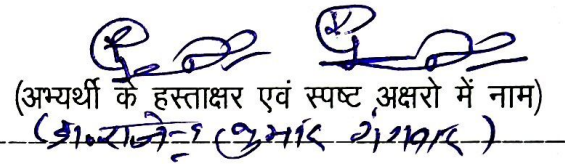 (अभ्यर्थी के हस्ताक्षर एवं स्पष्ट अक्षरो में नाम)
(डा. राजेन्द्र कुमार गंगवार)